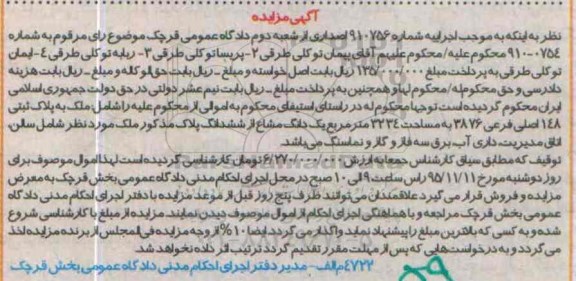 آگهی مزایده
نظر به اینکه به موجب اجراییه شماره ۹۱۰۷۵۶ اصداری از شعبه دوم دادگاه عمومی قرچک موضوع رای مرقوم به شماره
۹۱۰-۰۷۵۴ محکوم علیه/محکوم علیهم آقای پیمان توکلی طرقی ۲- پریسا توکلی طرقی ۳- ریابه توکلی طرقی ۴- ایمان
توکلی طرقی به پرداخت مبلغ ۱۳۵/۰۰۰/۰۰۰ ریال بابت اصل خواسته و مبلغ - ریال بابت حق الوکاله و مبلغ - ریال بابت هزینه
دادرسی و حق محکوم له/محکوم لهما و همچنین به پرداخت مبلغ - ریال بابت نیم عشر دولتی در حق دولت جمهوری اسلامی
ایران محکوم گردیده است توجها محکوم له در راستای استیفای محکوم به اموالی از محکوم علیه را شامل ملک به پلاک ثبتی
۱۴۸ اصلی فرعی ۳۸۷۶ به مساحت ۳۲۳۴ متر مربع یک دانگ مشاع از ششدانگ پلاک مذکور ملک مورد نظر شامل سالن،
اتاق مدیریت، داری آب، برق سه فاز و گاز و نماسنگ می باشد.
توقیف که مطابق سیاق کارشناس جمعا به ارزش ۶/۲۷۰/۰۰۰/۰۰۰ تومان کارشناسی گردیده است لهذا اموال موصوف برای
روز دوشنبه مورخ ۹۵/۱۱/۱۱ راس ساعت ۹ الی ۱۰ صبح در محل اجرای احکام مدنی دادگاه عمومی بخش قرچک به معرض
مزایده و فروش قرار می گیرد علاقمندان می توانند ظرف پنج روز قبل از موعد مزایده با دفتر اجرای احکام مدنی دادگاه
عمومی بخش قرچک مراجعه و با هماهنگی اجرای احکام از اموال موصوف دیدن نمایند. مزایده از مبلغ با کارشناسی شروع
شده و به کسی که بالاترین مبلغ را پیشنهاد نماید واگذار می گردد ایضا ۱۰٪ از وجه مزایده فی المجلس از برنده مزایده اخذ
می گردد و به درخواست هایی که پس از مهلت مقرر تقدیم گردد ترتیب اثر داده نخواهد شد.
۴۷۲۲م/الف - مدیر دفتر اجرای احکام مدنی دادگاه عمومی بخش قرچک